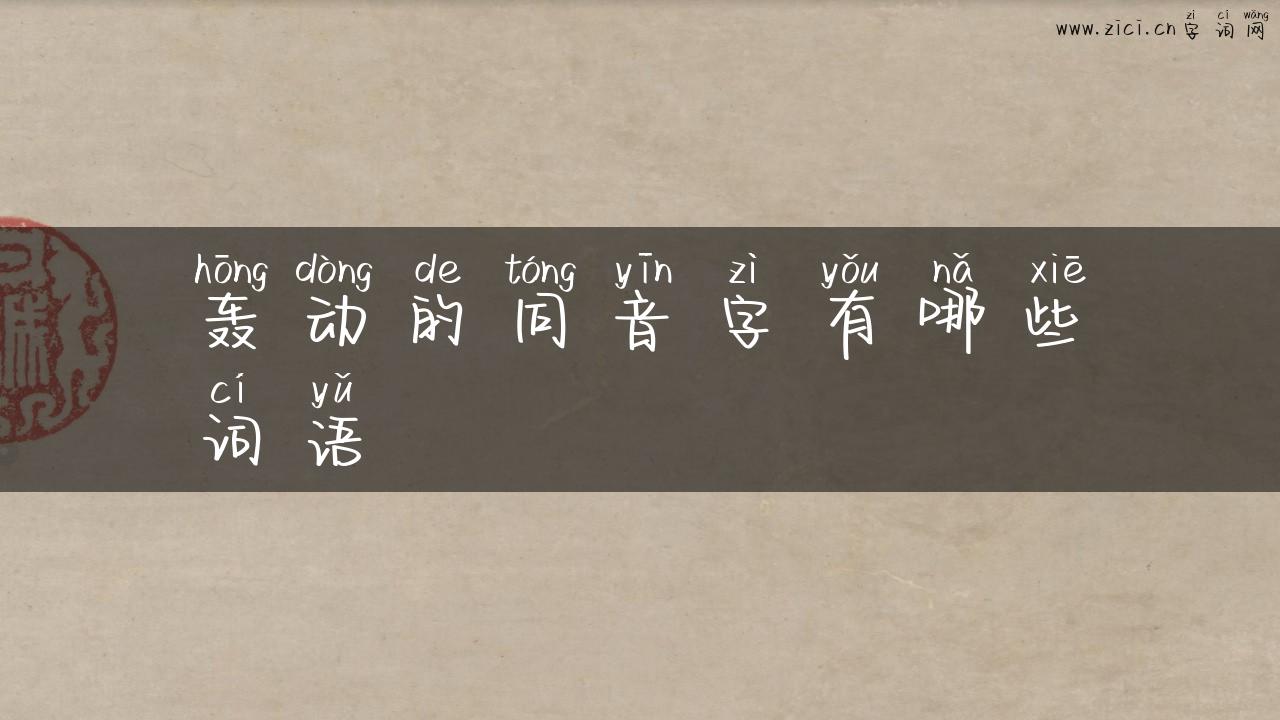 zì cí wǎng
www.zici.cn字词网
hōng dòng de tóng yīn zì yǒu nǎ xiē
轰动的同音字有哪些
cí yǔ
词语